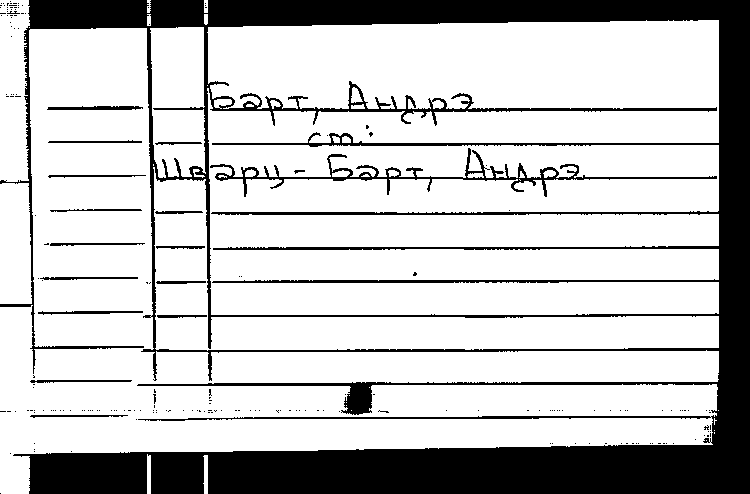 Барт, Андрэ
см.:
Шварц-Барт, Андрэ